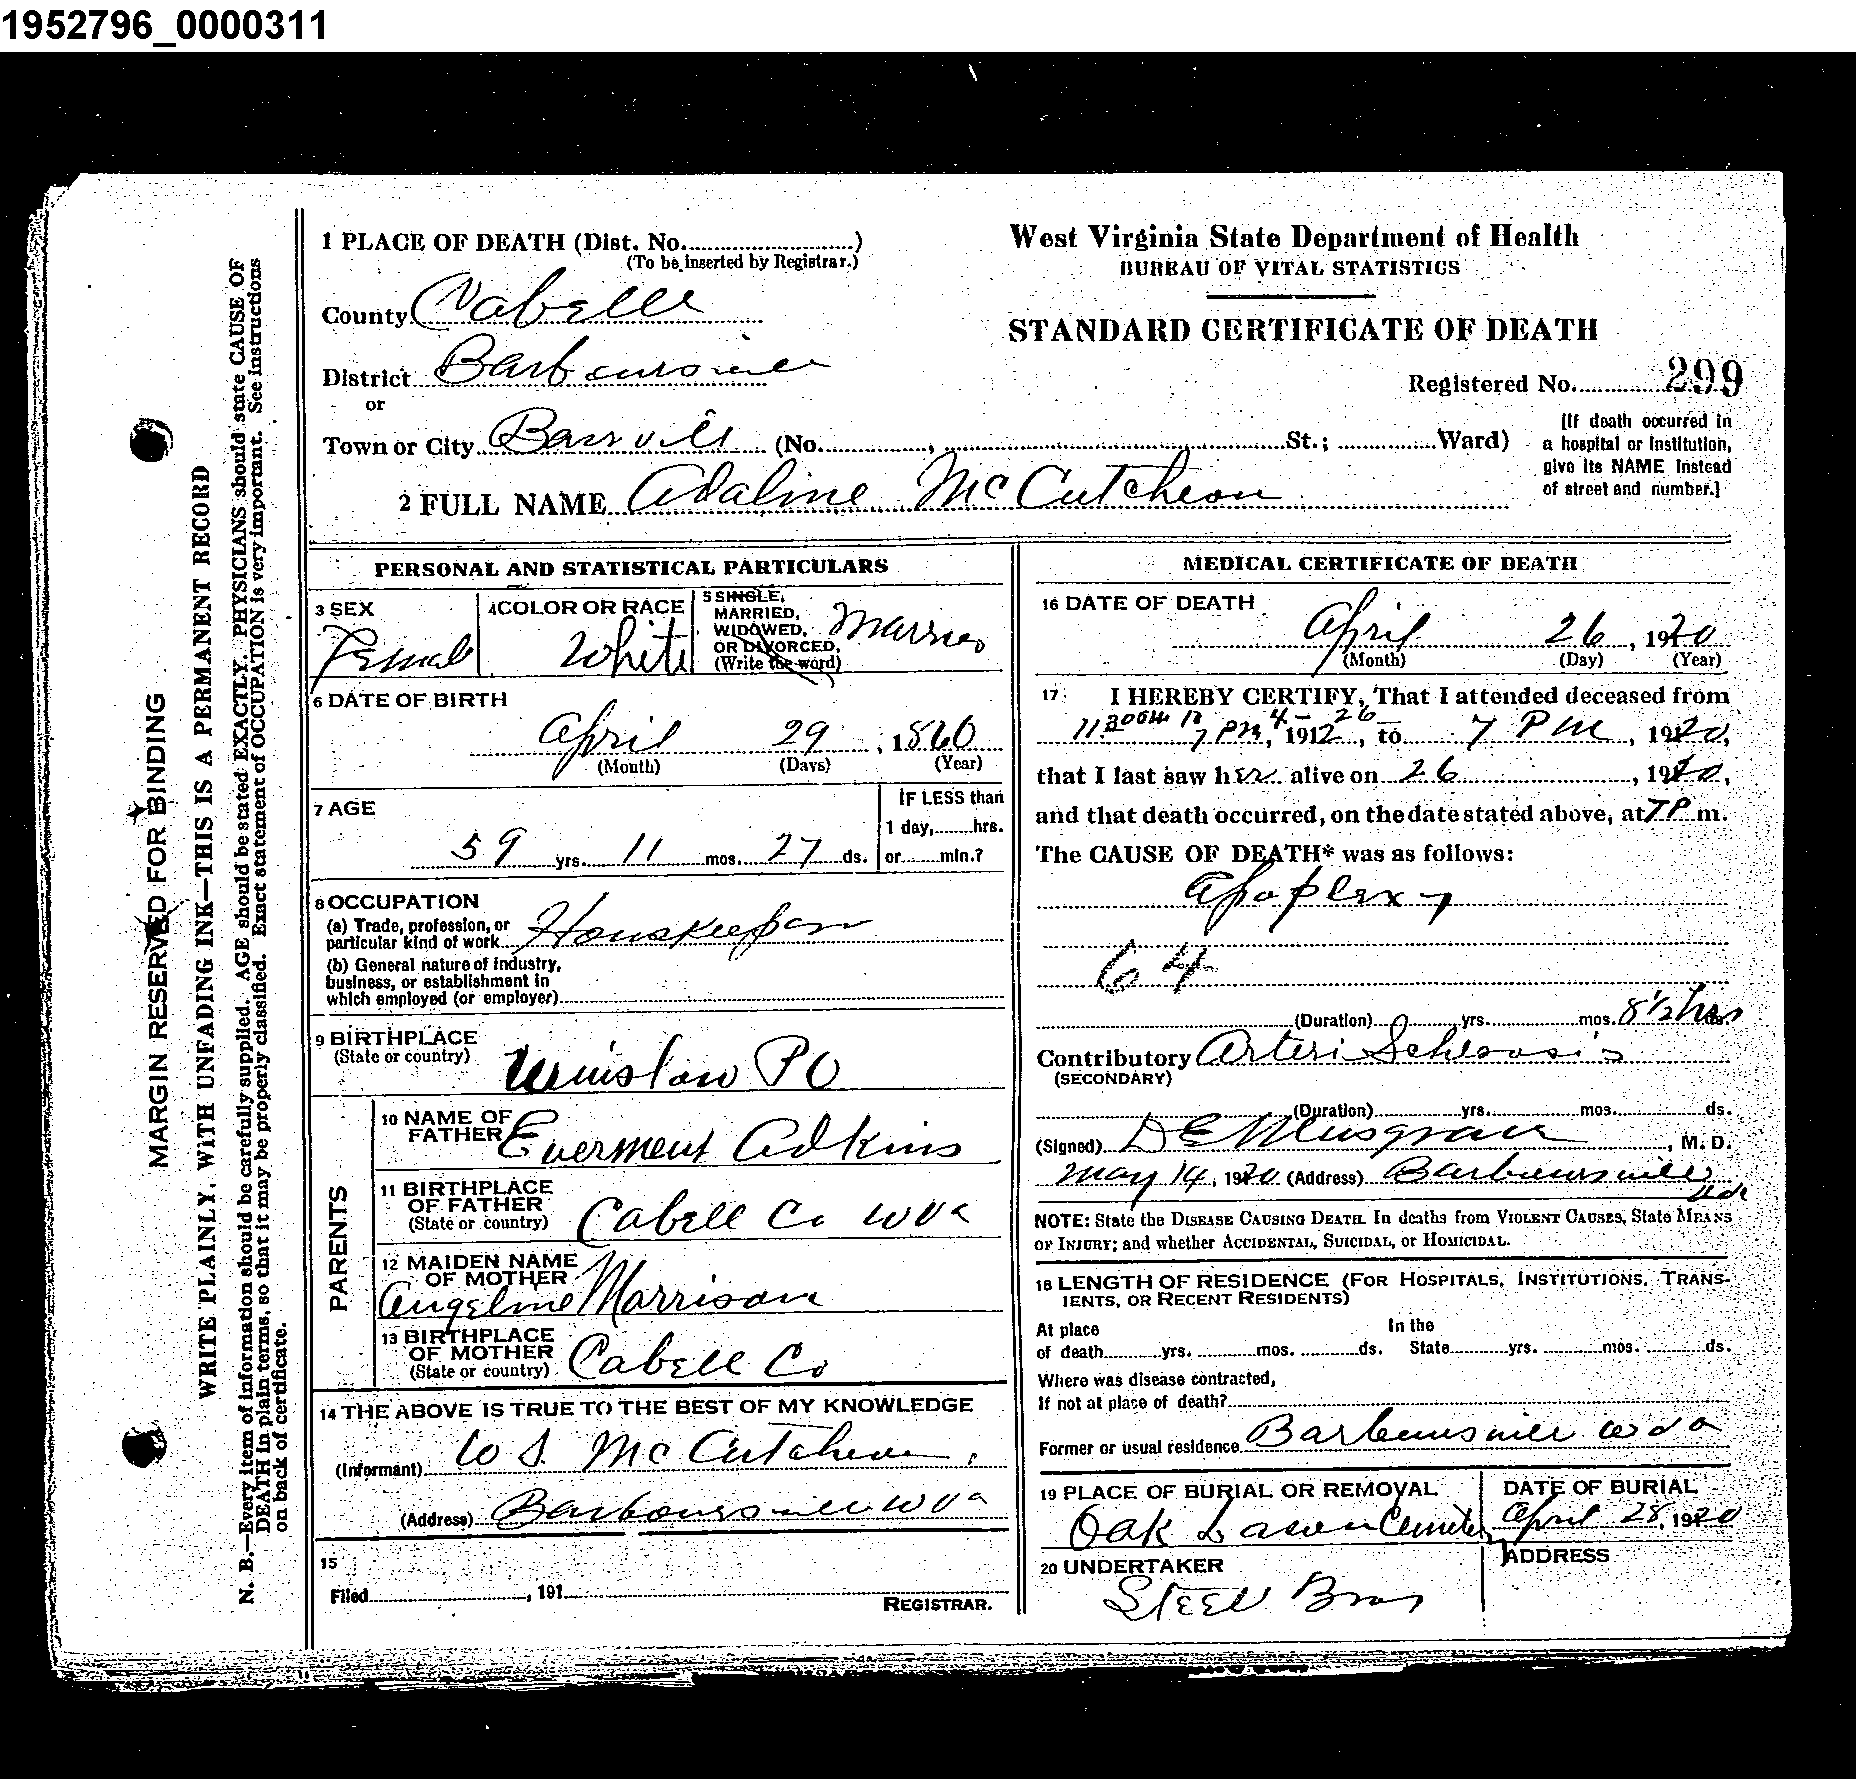 1952796_0000311
1 PLACE OF DEATH (Dist. No. )
(To be inserted by Registrar.)
County Cabell
District Barboursville
or
Town or City Barsvill (No. , St.; Ward)
2 FULL NAME Adaline McCutcheon
West Virginia State Department of Health
BUREAU OF VITAL STATISTICS
STANDARD CERTIFICATE OF DEATH
Registered No. 299
[If death occurred in
a hospital or institution,
give its NAME instead
of street and number.]
MARGIN RESERVED FOR BINDING
WRITE PLAINLY, WITH UNFADING INK—THIS IS A PERMANENT RECORD
N. B.—Every item of information should be carefully supplied. AGE should be stated EXACTLY. PHYSICIANS should state CAUSE OF
DEATH in plain terms, so that it may be properly classified. Exact statement of OCCUPATION is very important. See instructions
on back of certificate.
PERSONAL AND STATISTICAL PARTICULARS
3 SEX
Femal
4 COLOR OR RACE
White
5 SINGLE,
MARRIED,
WIDOWED,
OR DIVORCED,
(Write the word)
Married
6 DATE OF BIRTH
April 29, 1860
(Month) (Days) (Year)
7 AGE
59 yrs. 11 mos. 27 ds.
IF LESS than
1 day, hrs.
or min.?
8 OCCUPATION
(a) Trade, profession, or
particular kind of work Houskeeper
(b) General nature of industry,
business, or establishment in
which employed (or employer)
9 BIRTHPLACE
(State or country) Winslow PO
PARENTS
10 NAME OF
FATHER Everment Adkins
11 BIRTHPLACE
OF FATHER
(State or country) Cabell Co W Va
12 MAIDEN NAME
OF MOTHER
Angeline Morrison
13 BIRTHPLACE
OF MOTHER
(State or country) Cabell Co
14 THE ABOVE IS TRUE TO THE BEST OF MY KNOWLEDGE
(Informant) W S. McCutcheon
(Address) Barboursville W Va
15
Filed , 191
REGISTRAR.
MEDICAL CERTIFICATE OF DEATH
16 DATE OF DEATH
April 26, 1920
(Month) (Day) (Year)
17 I HEREBY CERTIFY, That I attended deceased from
7 PM, 4-26 1912, to 7 PM, 1920,
that I last saw her alive on 26, 1920,
and that death occurred, on the date stated above, at 7 P m.
The CAUSE OF DEATH* was as follows:
Apoplexy
64
(Duration) yrs. mos. 8 1/2 hrs ds.
Contributory Arteri Schlorosis
(SECONDARY)
(Duration) yrs. mos. ds.
(Signed) D E Musgrave, M. D.
May 14, 1920 (Address) Barboursville
NOTE: State the DISEASE CAUSING DEATH. In deaths from VIOLENT CAUSES, State MEANS
OF INJURY; and whether ACCIDENTAL, SUICIDAL, or HOMICIDAL.
18 LENGTH OF RESIDENCE (FOR HOSPITALS, INSTITUTIONS, TRANS-
IENTS, OR RECENT RESIDENTS)
At place In the
of death yrs. mos. ds. State yrs. mos. ds.
Where was disease contracted,
If not at place of death?
Former or usual residence Barboursville W Va
19 PLACE OF BURIAL OR REMOVAL
Oak Lawn Cemetery
DATE OF BURIAL
April 28, 1920
20 UNDERTAKER
Steel Bros
ADDRESS